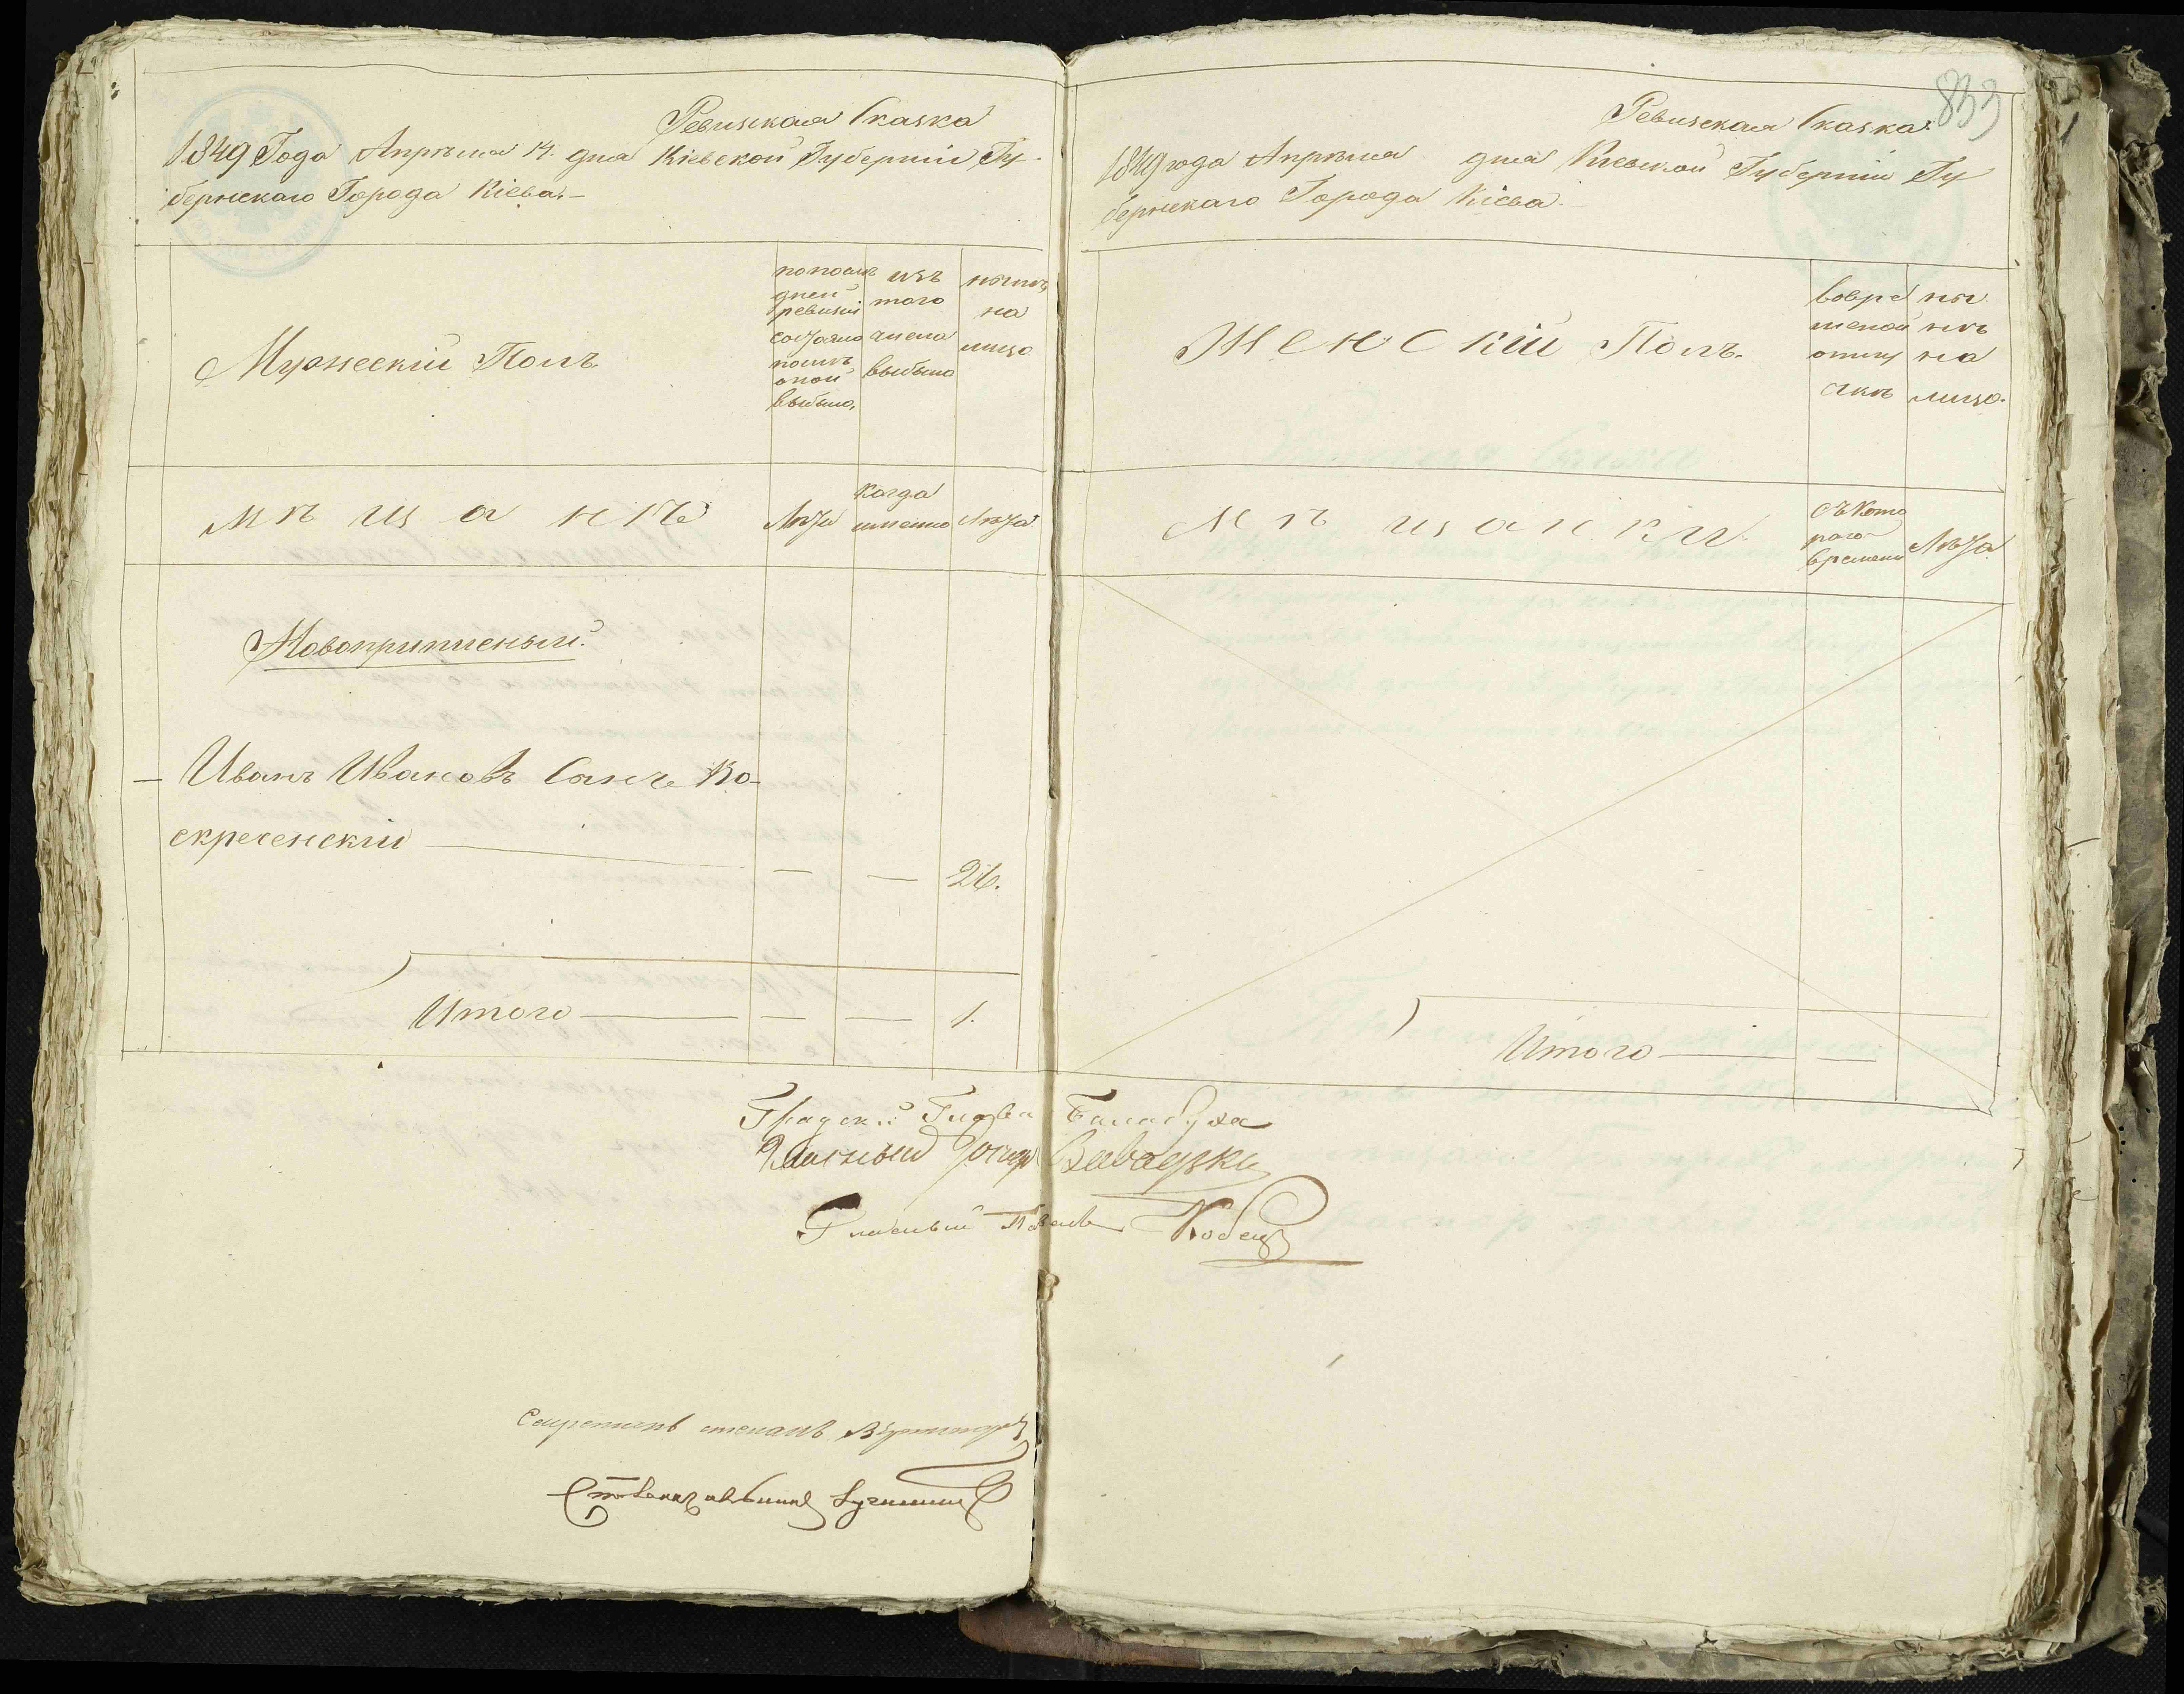 Ревизская Сказка
1849 Года Апрѣля 14 дня Кіевской Губерніи Гу-
бернскаго Города Кіева.
Мужескій Полъ.
по послѣ
дней
ревизіи
состояло
послѣ
оной
выбыло,
изъ
того
числа
выбыло
нынѣ
на
лицо
мѣщане
Лѣта
когда
именно
Лѣта
Новоприписный.
Иванъ Ивановъ Сынъ Во-
скресенскій
26.
Итого — — — 1.
833
Ревизская Сказка.
1849 года Апрѣля дня Кіевской Губерніи Гу
бернскаго Города Кіева.
Женскій Полъ.
вовре
менной
отлу
чкѣ
ны
нѣ
на
лицо.
Мѣщанки.
съ кото
раго
времени
Лѣта
Итого —
Градскій Глава Балабуха
Гласный
Гласный Кобец